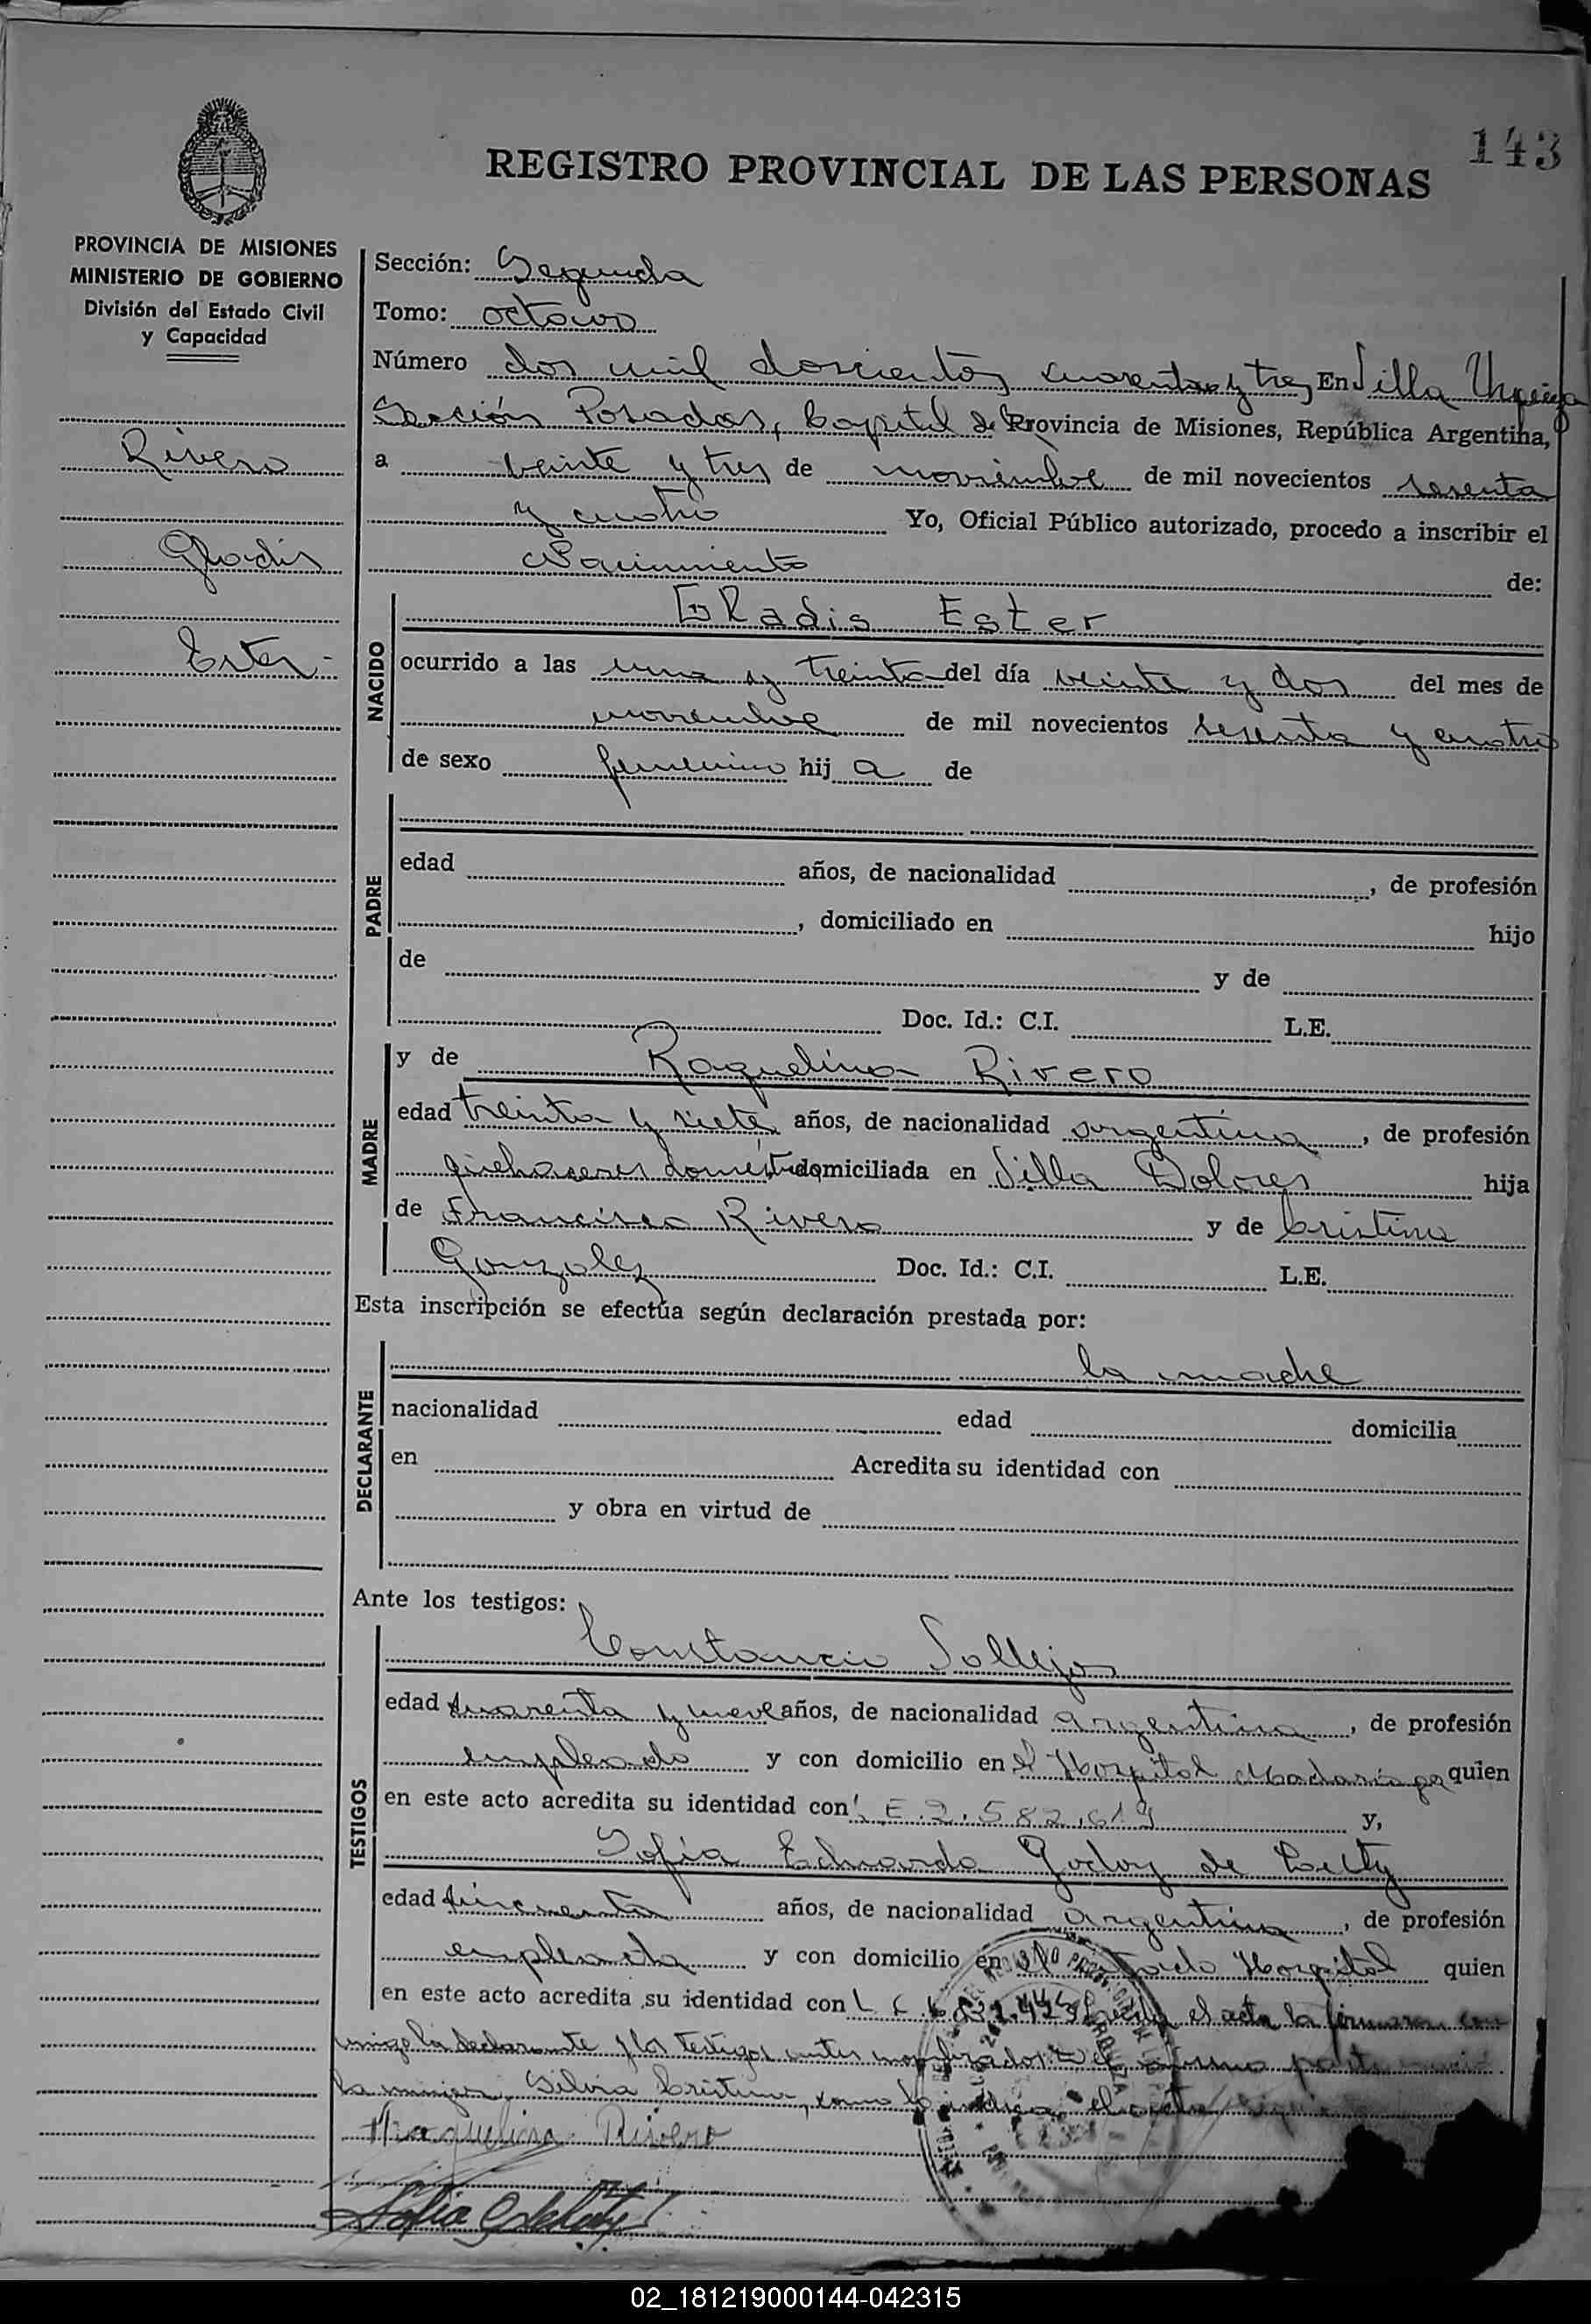 143
REGISTRO PROVINCIAL DE LAS PERSONAS
PROVINCIA DE MISIONES
MINISTERIO DE GOBIERNO
División del Estado Civil
y Capacidad
Rivero
Gladis
Ester.-
Sección: Segunda
Tomo: octavo
Número dos mil doscientos cuarenta y tres En Villa Urquiza
Sección Posadas, Capital de Provincia de Misiones, República Argentina,
a veinte y tres de noviembre de mil novecientos sesenta
y cuatro Yo, Oficial Público autorizado, procedo a inscribir el
Nacimiento de:
NACIDO
Gladis Ester
ocurrido a las una y treinta del día veinte y dos del mes de
noviembre de mil novecientos sesenta y cuatro
de sexo femenino hij a de
PADRE
edad años, de nacionalidad , de profesión
, domiciliado en hijo
de y de
Doc. Id.: C.I. L.E.
MADRE
y de Raquelina Rivero
edad treinta y siete años, de nacionalidad argentina , de profesión
quehaceres domiciliada en Villa Dolores hija
de Francisco Rivero y de Cristina
Gonzalez Doc. Id.: C.I. L.E.
Esta inscripción se efectúa según declaración prestada por:
DECLARANTE
la madre
nacionalidad edad domicilia
en Acredita su identidad con
y obra en virtud de
Ante los testigos:
TESTIGOS
Constancio Vallejos
edad cuarenta y nueve años, de nacionalidad argentina , de profesión
empleado y con domicilio en el Hospital Madariaga quien
en este acto acredita su identidad con E. 2.582.619 y,
Sofia Eduarda Godoy de
edad cincuenta años, de nacionalidad argentina , de profesión
empleada y con domicilio en Hospital quien
en este acto acredita su identidad con L C el acta la firmaron con
migo la declarante y los testigos antes nombrados
Silvia Cristina, como lo indica
Raquelina Rivero
Sofia
02_181219000144-042315